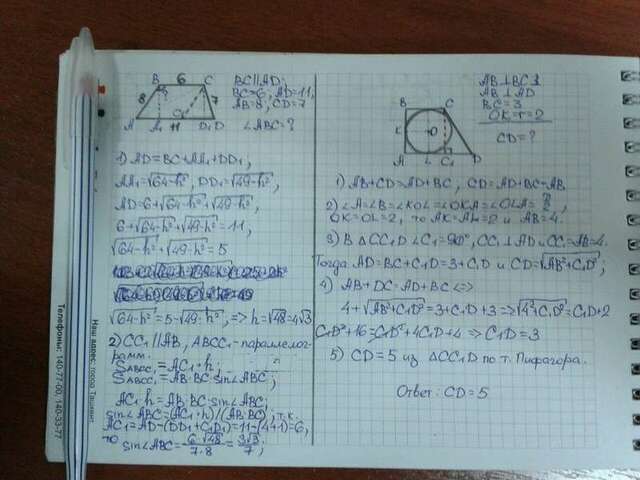 B 6 C
8 7
A A₁ 11 D₁ D
BC∥AD;
BC=6, AD=11,
AB=8, CD=7
∠ABC=?
1) AD=BC+AA₁+DD₁,
AA₁=√64-h², DD₁=√49-h²,
AD=6+√64-h²+√49-h²,
6+√64-h²+√49-h²=11,
√64-h²+√49-h²=5
√64-h²=5-√49-h², => h=√48=4√3
2) CC₁∥AB, ABCC₁-параллелог-
рамм.
S_ABCC₁=AC₁·h;
S_ABCC₁=AB·BC·sin∠ABC;
AC₁·h=AB·BC·sin∠ABC;
sin∠ABC=(AC₁·h)/(AB·BC), т.к.
AC₁=AD-(DD₁+C₁D₁)=11-(4+1)=6,
то sin∠ABC=6·√48/7·8=3√3/7;
AB⊥BC
AB⊥AD
BC=3
OK=r=2
CD=?
B C
K O
A L C₁ D
1) AB+CD=AD+BC, CD=AD+BC-AB
2) ∠A=∠B=∠KOL=∠OKA=∠OLA=π/2,
OK=OL=2, то AK=AL=2 и AB=4.
3) В △CC₁D ∠C₁=90°, CC₁⊥AD и CC₁=AB=4.
Тогда AD=BC+C₁D=3+C₁D и CD=√AB²+C₁D²;
4) AB+DC=AD+BC <=>
4+√AB²+C₁D²=3+C₁D+3=>√4²+C₁D²=C₁D+2
C₁D²+16=C₁D²+4C₁D+4 => C₁D=3
5) CD=5 из △CC₁D по т. Пифагора.
Ответ: CD=5
Наш адрес: город Ташкент,
Телефоны: